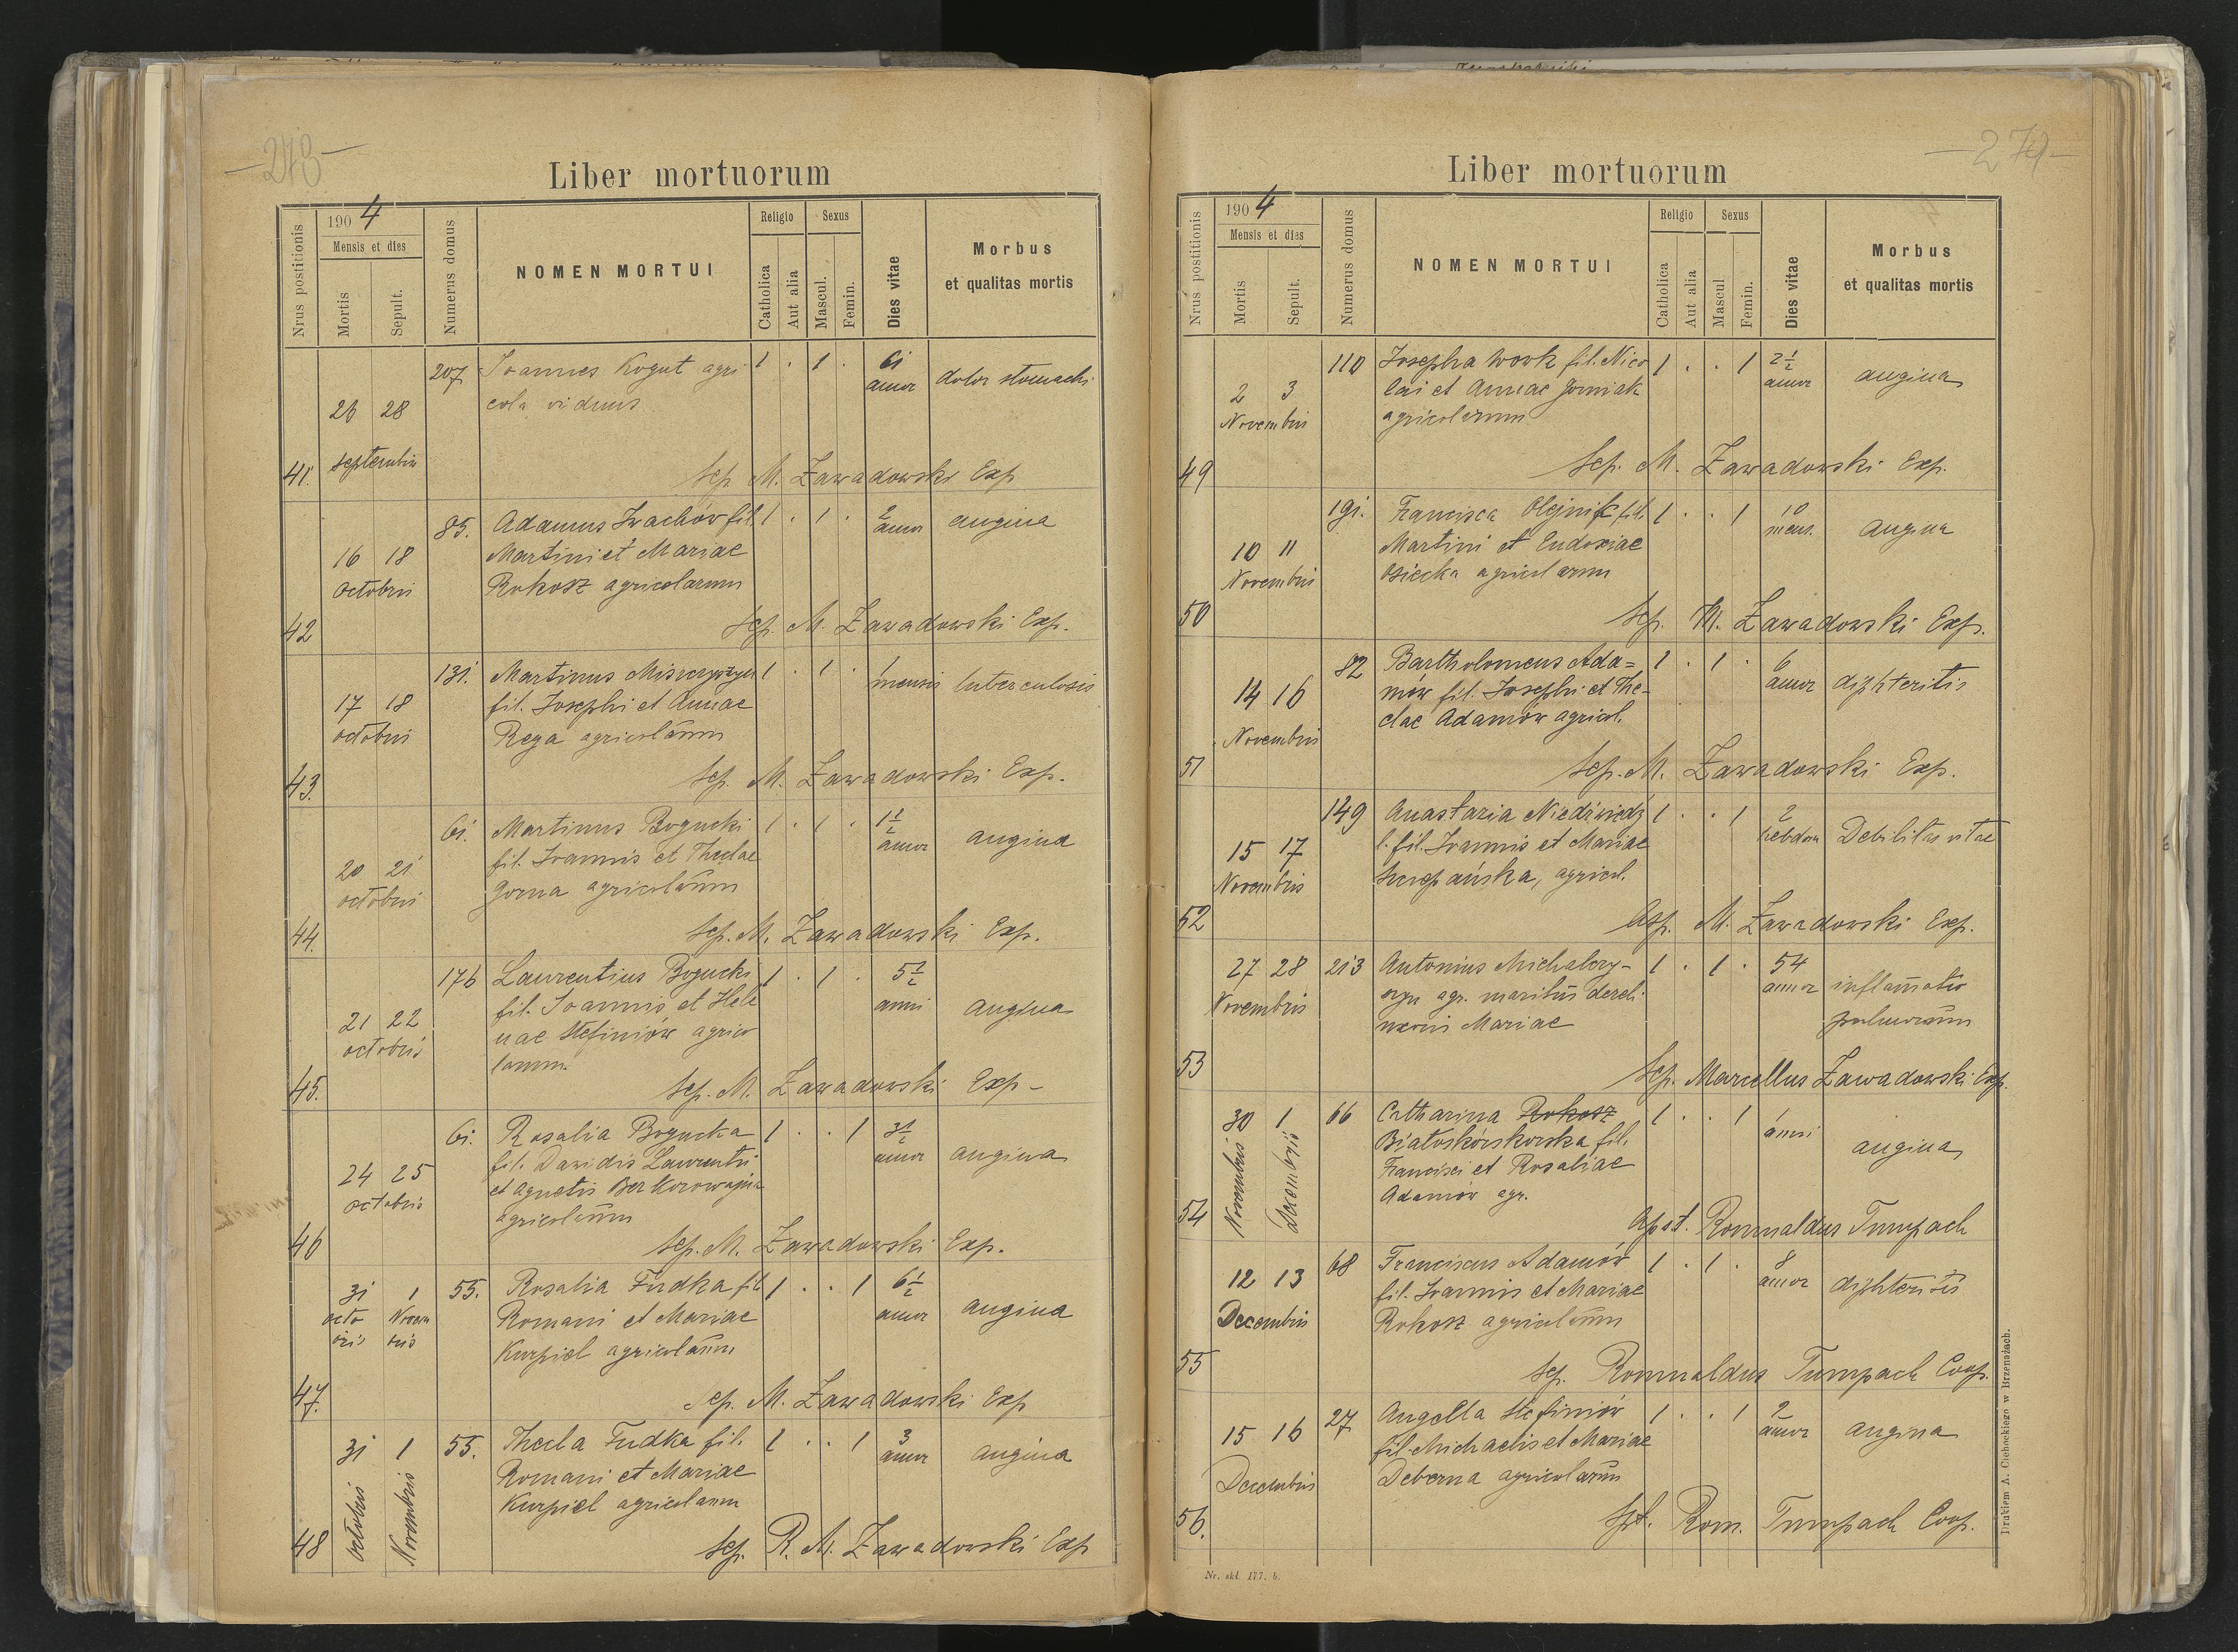 —278—
Liber mortuorum
Nrus postitionis
1904
Mensis et dies
Mortis
Sepult.
Numerus domus
NOMEN MORTUI
Religio
Catholica
Aut alia
Sexus
Mascul.
Femin.
Dies vitae
Morbus
et qualitas mortis
207 Joannes Kogut agri 1 . 1 . 61
annor dolor stomachi
26 28 cola viduus
septembris
41. Sep. M. Zawadowski Exp
85. Adamus Iwachów fil. 1 . 1 . 2
annor angina
16 18 Martini et Mariae
octobris Rokosz agricolarum
42 Sep. M. Zawadowski Exp.
131. Martinus 1 . 1 . 1
mensis tuberculosis
17 18 fil. Josephi et Annae
octobris Rega agricolarum
43. Sep. M. Zawadowski Exp.
61. Martinus Bogucki 1 . 1 . 1½
annor angina
20 21 fil. Joannis et Theclae
octobris Gorna agricolarum
44. Sep. M. Zawadowski Exp.
176 Laurentius Bogucki 1 . 1 . 5½
anni angina
21 22 fil. Joannis et Hele
octobris nae Stefiniów agrico
larum
45. Sep. M. Zawadowski Exp –
61. Rosalia Bogucka 1 . . 1 3½
annor angina
24 25 fil. Davidis Laurentii
octobris et Agnetis Ber
agricolarum
46 Sep. M. Zawadowski Exp.
31 1 55. Rosalia Fudka fil. 1 . . 1 6½
annor angina
octo Novem Romani et Mariae
bris bris Kurpiel agricolarum
47. Sep. M. Zawadowski Exp
31 1 55. Thecla Fudka fil. 1 . . 1 3
annor angina
octobris Novembris Romani et Mariae
Kurpiel agricolarum
48 Sep. R. M. Zawadowski Exp
—279—
Liber mortuorum
Nrus postitionis
1904
Mensis et dies
Mortis
Sepult.
Numerus domus
NOMEN MORTUI
Religio
Catholica
Aut alia
Sexus
Mascul
Femin.
Dies vitae
Morbus
et qualitas mortis
110 Josepha Wowk fil. Nico 1 . . 1 2½
annor angina
2 3 lai et Annae Gorniak
Novembris agricolarum
49 Sep. M. Zawadowski Exp.
191. Francisca Olejnik fil. 1 . . 1 10
mens. angina
10 11 Martini et Eudoxiae
Novembris Osiecka agricolarum
50 Sep. M. Zawadowski Exp.
82 Bartholomeus Ada= 1 . 1 . 6
annor diphteritis
14 16 mów fil. Josephi et The-
Novembris clae Adamów agricol.
51 Sep. M. Zawadowski Exp.
149 Anastazia Niedźwiedz 1 . . 1 2
hebdom Debilitas vitae
15 17 l. fil. Joannis et Mariae
Novembris Szczepańska, agricol.
52 Sep. M. Zawadowski Exp.
27 28 213 Antonius Michalczy- 1 . 1 . 54
annor inflamatio
Novembris szyn agr. maritus derel.
pulmorum
uxoris Mariae
53 Sep. Marcellus Zawadowski Exp.
30 1 66 Catharina Rokosz 1 . . 1 1
anni angina
Novembris Decembris Białoskórskorska fil.
Francisci et Rosaliae
Adamów agr.
54 Romualdus Tumpach
12 13 68 Franciscus Adamów 1 . 1 . 8
annor diphteritis
Decembris fil. Joannis et Mariae
Rokosz agricolarum
55 Sep. Romualdus Tumpach Coop.
15 16 27 Angella Stefiniów 1 . . 1 2
annor angina
Decembris fil. Michaelis et Mariae
Deberna agricolarum
56. Spt. Rom. Tumpach Coop.
Nr. skł. 177. b.
Drukiem A. Cichockiego w Brzeżanach.